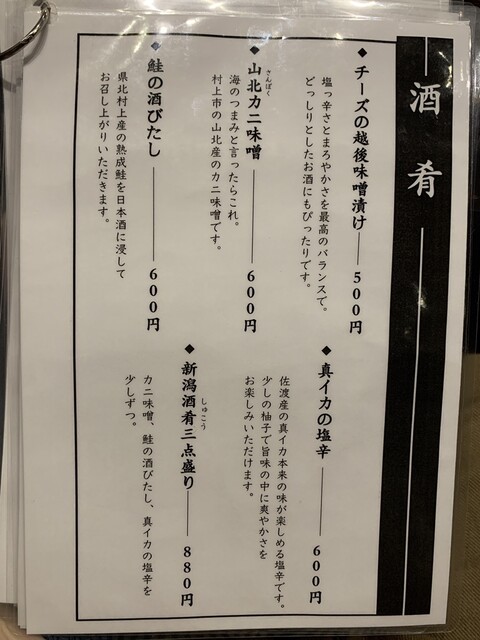 酒肴
◆チーズの越後味噌漬け―500円
塩っ辛さとまろやかさを最高のバランスで。
どっしりとしたお酒にもぴったりです。
◆山北カニ味噌―600円
さんぽく
海のつまみと言ったらこれ。
村上市の山北産のカニ味噌です。
◆鮭の酒びたし―600円
県北村上産の熟成鮭を日本酒に浸して
お召し上がりいただきます。
◆真イカの塩辛―600円
佐渡産の真イカ本来の味が楽しめる塩辛です。
少しの柚子で旨味の中に爽やかさを
お楽しみいただけます。
◆新潟酒肴三点盛り―880円
しゅこう
カニ味噌、鮭の酒びたし、真イカの塩辛を
少しずつ。